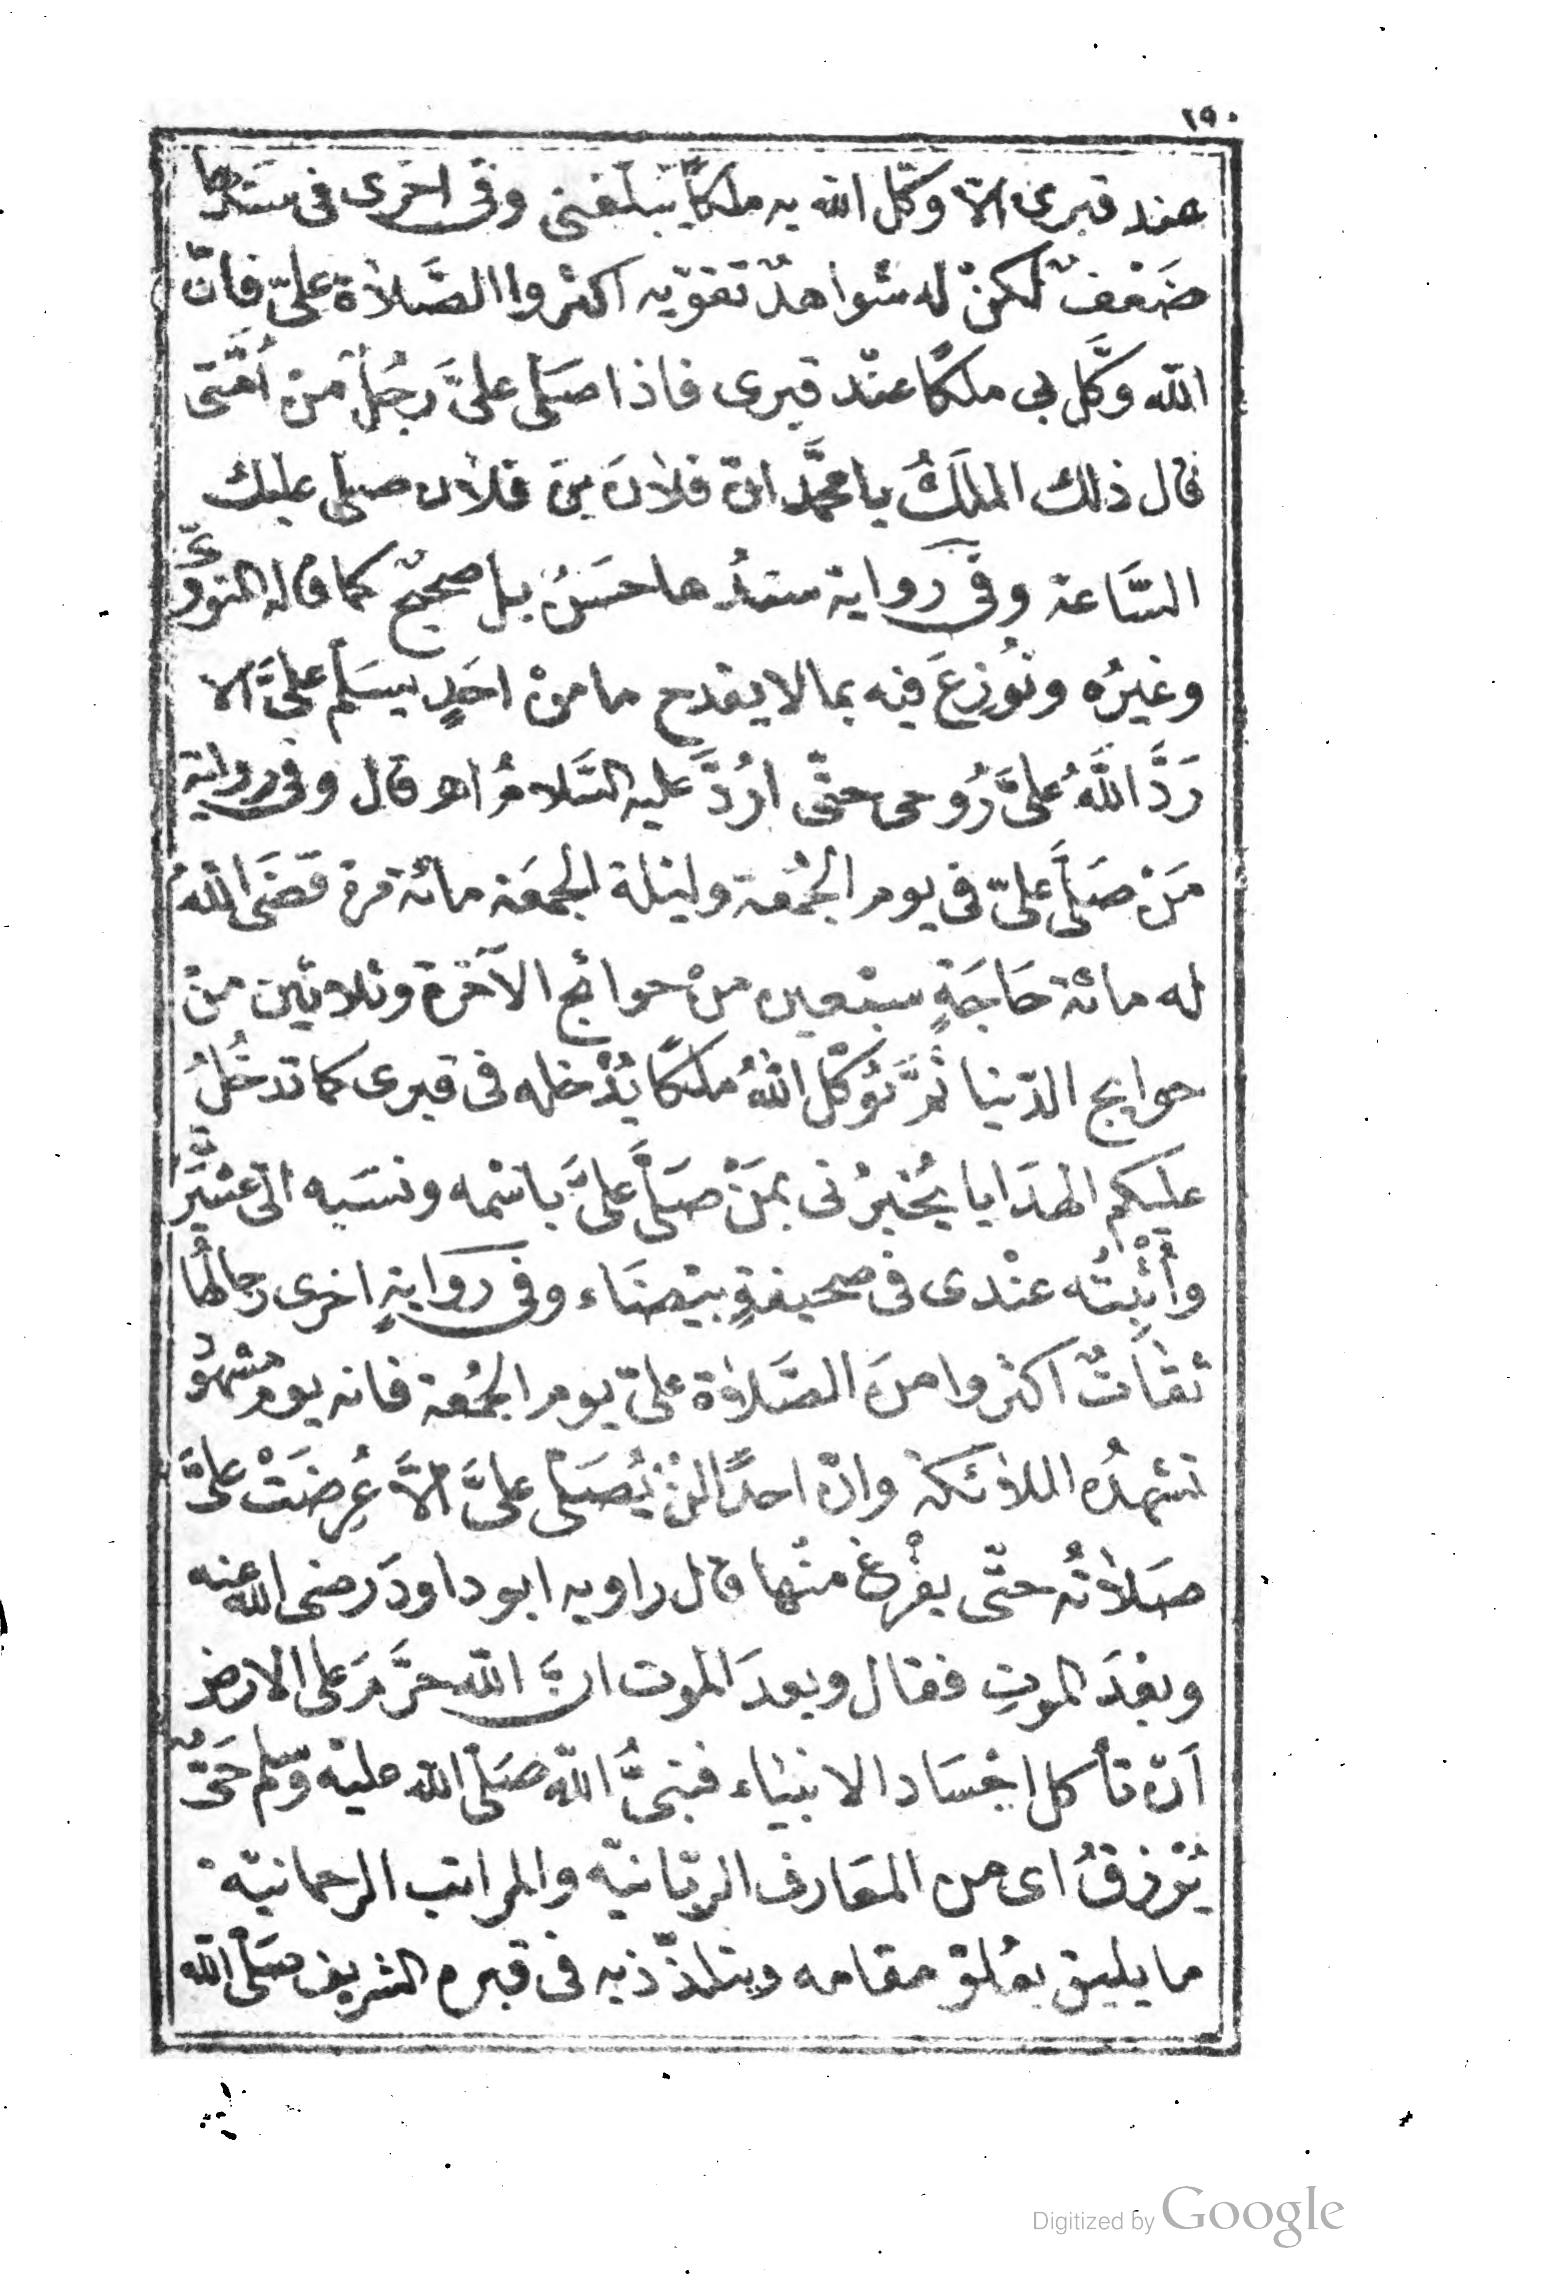 ١٩٠
عند قبرى الّا وكّل الله به ملكًا يبلّغنى وفى اخرى فى سندها
ضَعْفٌ لكنْ له شواهدٌ تقوّيه اكثروا الصَّلاة علىّ فانّ
الله وكَّل بى ملكًا عنْد قبرى فاذا صَلّى علىَّ رَجُلٌ منْ اُمَّتى
قال ذلك الملَكُ يا محمَّد انّ فلانَ بنَ فلان صلى عليك
السَّاعة وفى رواية سندُها حسَنٌ بل صحيحٌ كما قاله النووىّ
وغيرُه ونُوزعَ فيه بما لا يقدح ما منْ احَدٍ يسَلّم علىَّ الا
رَدَّ اللَّهُ علىَّ رُوحى حتّى ارُدَّ عليه السَّلامُ اهـ قال وفى رواية
مَنْ صَلَّى علىّ فى يوم الجُمُعة وليْلة الجمعَة مائة مرة قضَى اللهُ
له مائة حَاجَةٍ سبْعين منْ حوائج الآخرة وثلاثين منْ
حوايج الدّنيا ثمَّ يُوكّل اللهُ ملكًا يُدْخله فى قبرى كما تدخُلُ
عليكم الهدَايا يُخْبرُنى بمَنْ صَلَّى علىَّ باسْمه ونسَبه الى عشيَرته
وأُثْبتُه عنْدى فى صحيفةٍ بيْضَاء وفى روايةٍ اخرى رجالهُا
ثقاتٌ اكثروا منَ الصَّلاة علىّ يوم الجُمُعة فانه يوم مشْهود
تشهدُه الملائكة وانّ احدًا لنْ يُصَلّى علىَّ الَّا عُرِضَتْ علىَّ
صَلاتُه حتّى يفْرغ منْها قال راويه ابو داودَ رضى الله عنه
وبعْدَ الموتِ فقال وبعدَ الموت انَّ الله حرَّمَ على الارض
اَنّ تأكل اجْسَاد الانبيَاء فنبىُّ اللّه صَلّى الله عليْه وسلم حَىٌّ
يُرْزقُ اى من المعَارف الربّانيّه والمراتب الرحمانيّة
ما يليق بعُلوّ مقامه ويتلذّذ به فى قبره الشريف صَلّى اللّه
Digitized by Google